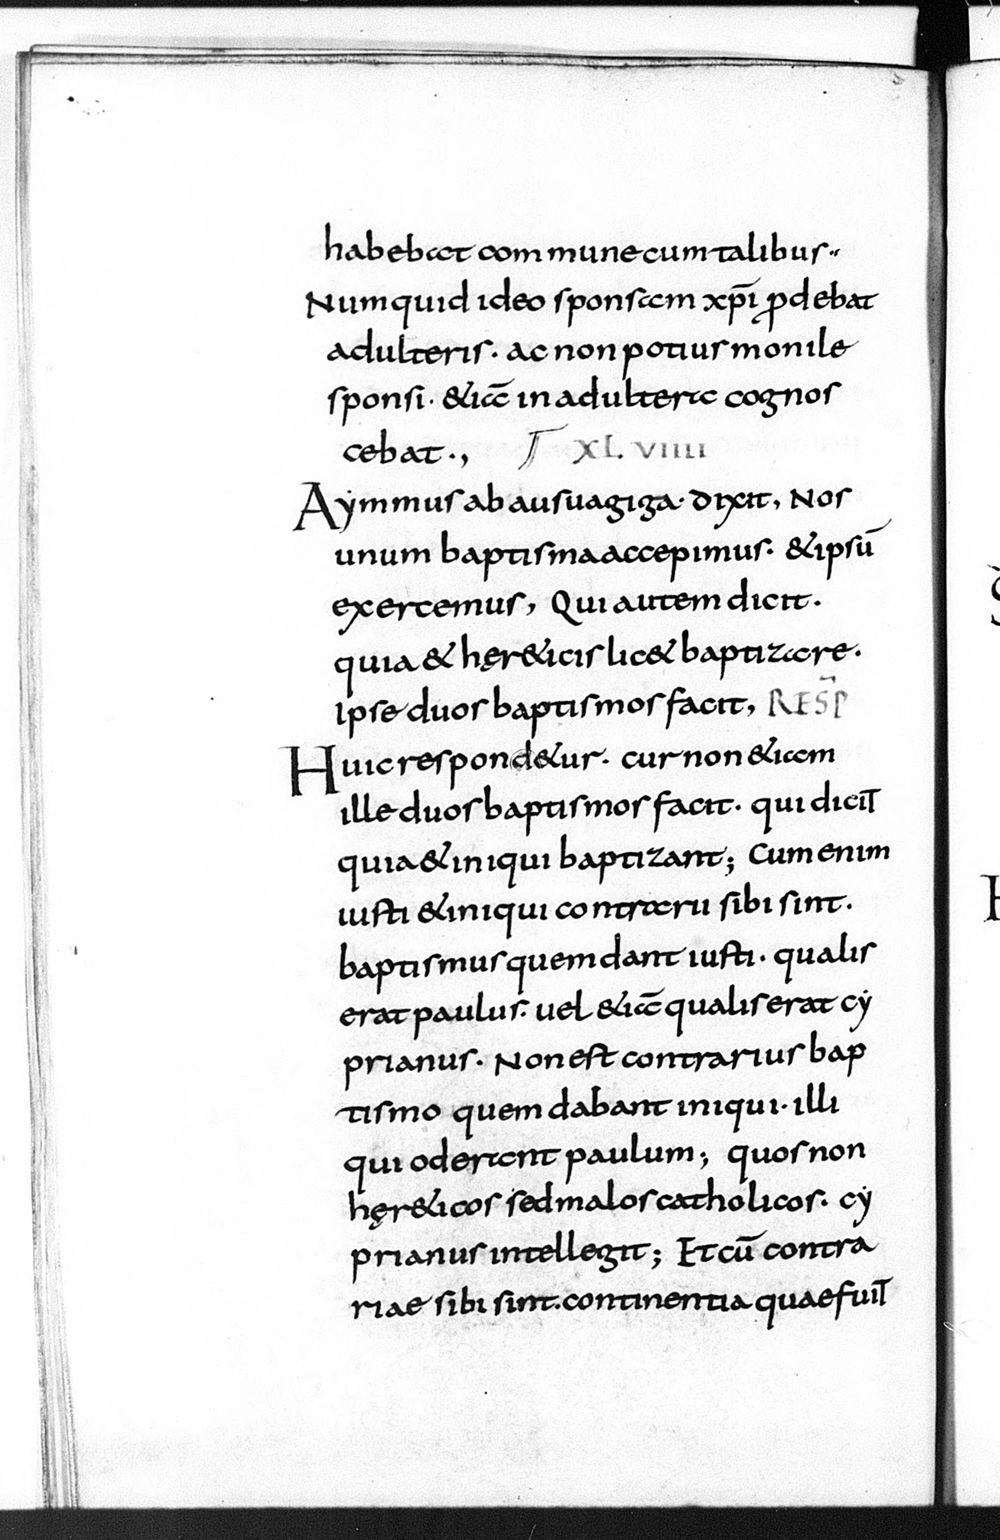 habebat commune cum talibus.
Numquid ideo sponsam xp̄i ꝓdebat
adulteris· ac non potius monile
sponsi· &iā in adultera cognos
cebat·, XLVIIII
Aẏmmus ab ausuagiga· dixit, Nos
unum baptisma accepimus· & ipsū
exercemus, Qui autem dicit·
quia & hęr&icis lic& baptizare·
Ipse duos baptismos facit, RESP̄
Huic respond&ur· cur non &iam
ille duos baptismos facit· qui dicit
quia & iniqui baptizant; Cum enim
iusti & iniqui contrarii sibi sint·
baptismus quem dant iusti· qualis
erat paulus· uel &iā qualis erat cẏ
prianus· Non est contrarius bap
tismo quem dabant iniqui· illi
qui oderant paulum; quos non
hęr&icos sed malos catholicos· cẏ
prianus intellegit; Et cū contra
riae sibi sint· continentia quae fuit